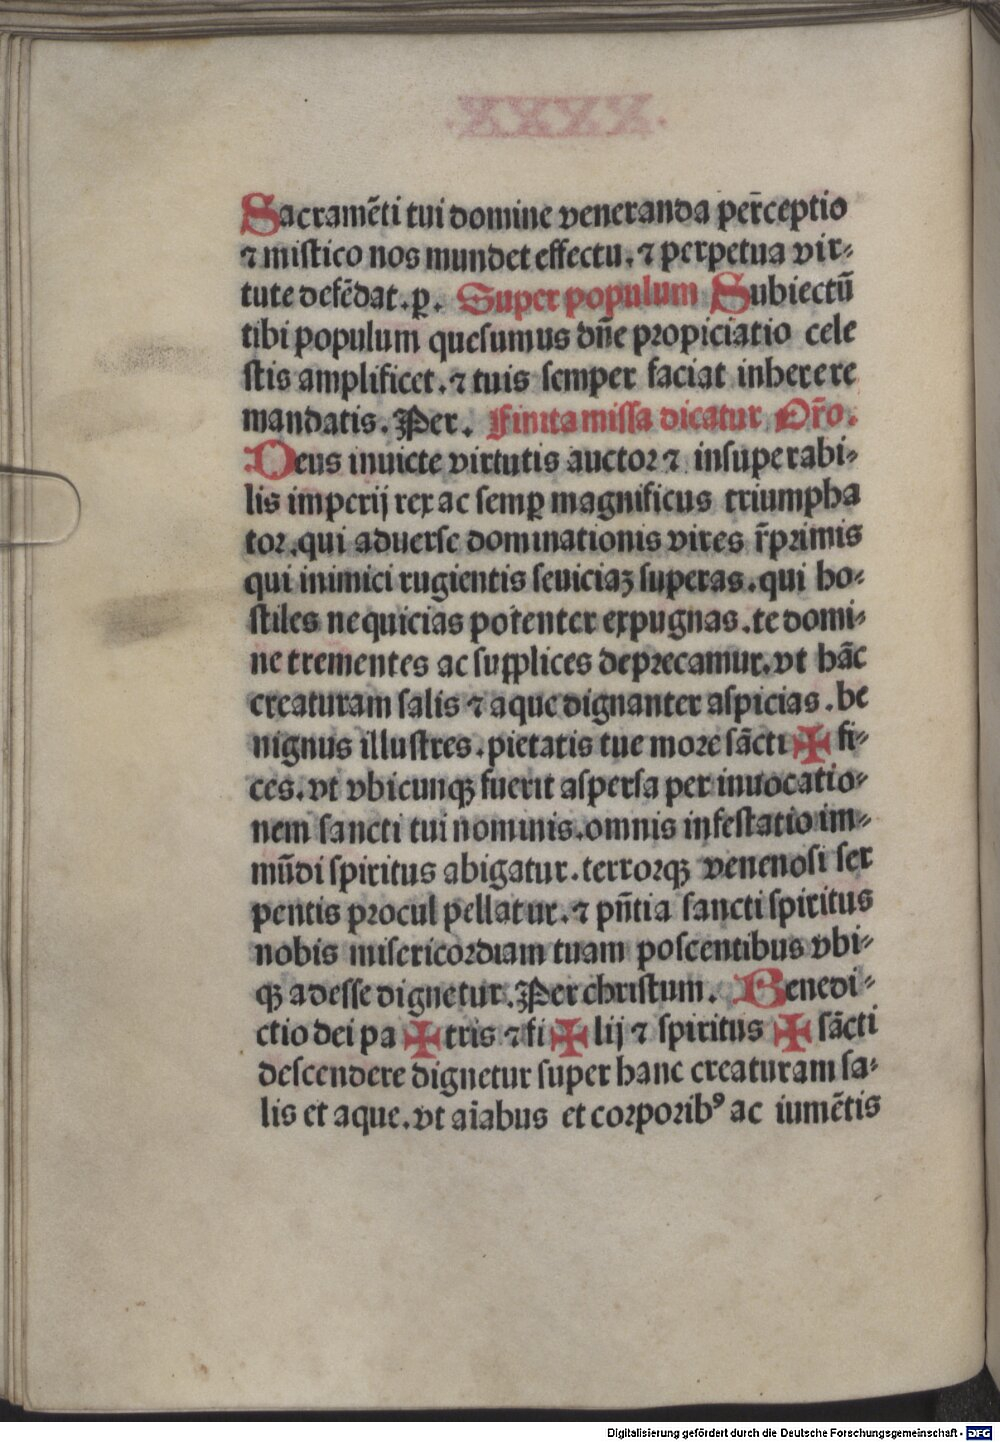 ·XXXX·
Sacramēti tui domine veneranda per̄ceptio
⁊ mistico nos mundet effectu. ⁊ perpetua vir⸗
tute defēdat. ꝑ. Super populum Subiectū
tibi populum quesumus dn̄e propiciatio cele
stis amplificet. ⁊ tuis semper faciat inherere
mandatis. Per. Finita missa dicatur Or̄o.
Deus inuicte virtutis auctor ⁊ insuperabi⸗
lis imperij rex ac semꝑ magnificus triumpha
tor. qui aduerse dominationis vires r̄primis
qui inimici rugientis seuiciaꝫ superas. qui ho⸗
stiles nequicias potenter expugnas. te domi⸗
ne trementes ac supplices deprecamur. vt hāc
creaturam salis ⁊ aque dignanter aspicias. be
nignus illustres. pietatis tue more sācti ✠ fi⸗
ces. vt vbicunqꝫ fuerit aspersa per inuocatio⸗
nem sancti tui nominis. omnis infestatio im⸗
mūdi spiritus abigatur. terrorqꝫ venenosi ser
pentis procul pellatur. ⁊ pn̄tia sancti spiritus
nobis misericordiam tuam poscentibus vbi⸗
qꝫ adesse dignetur. Per christum. Benedi⸗
ctio dei pa ✠ tris ⁊ fi ✠ lij ⁊ spiritus ✠ sācti
descendere dignetur super hanc creaturam sa⸗
lis et aque. vt aīabus et corporibꝰ ac iumētis
Digitalisierung gefördert durch die Deutsche Forschungsgemeinschaft - DFG